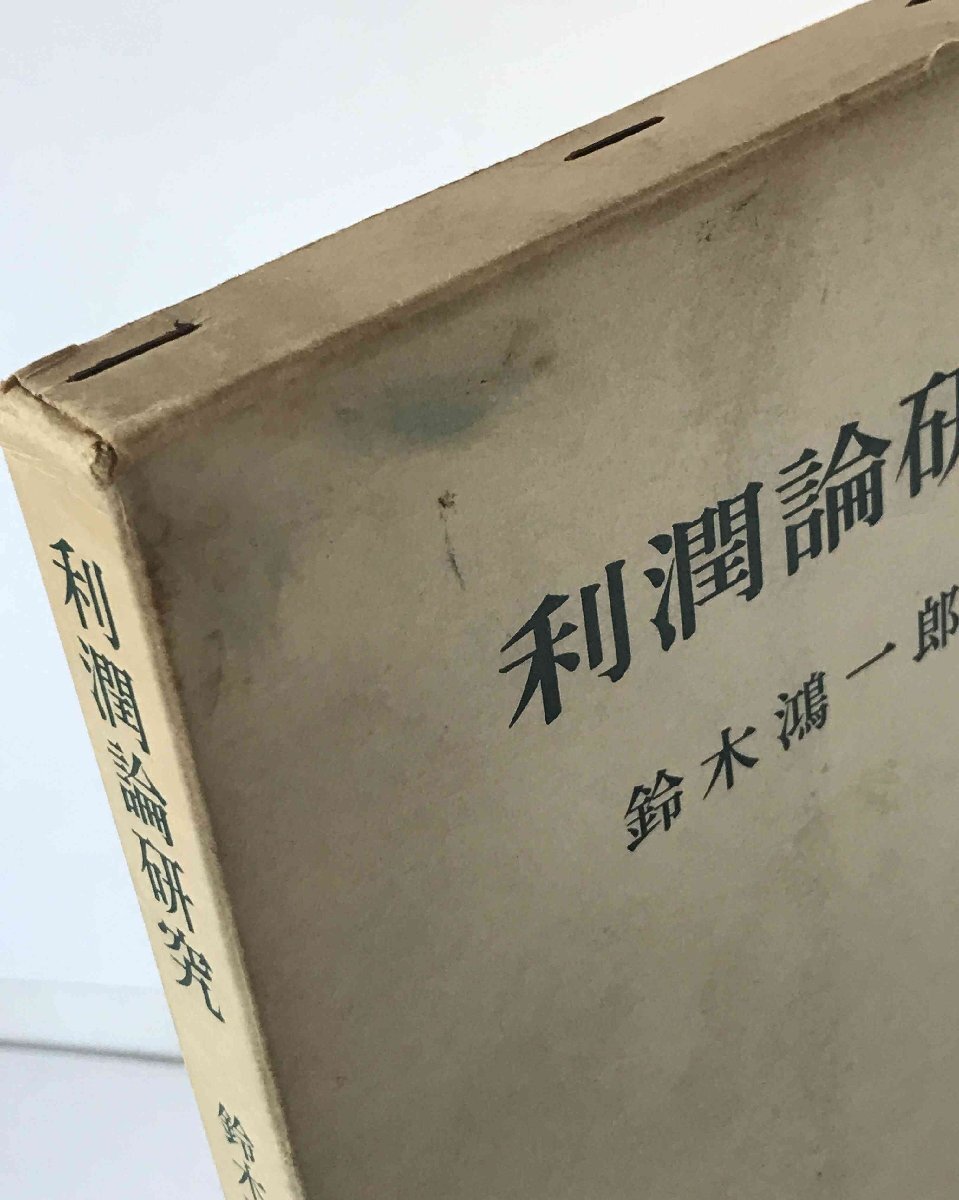 利潤論研
鈴木鴻一郎
利潤論研究
鈴木